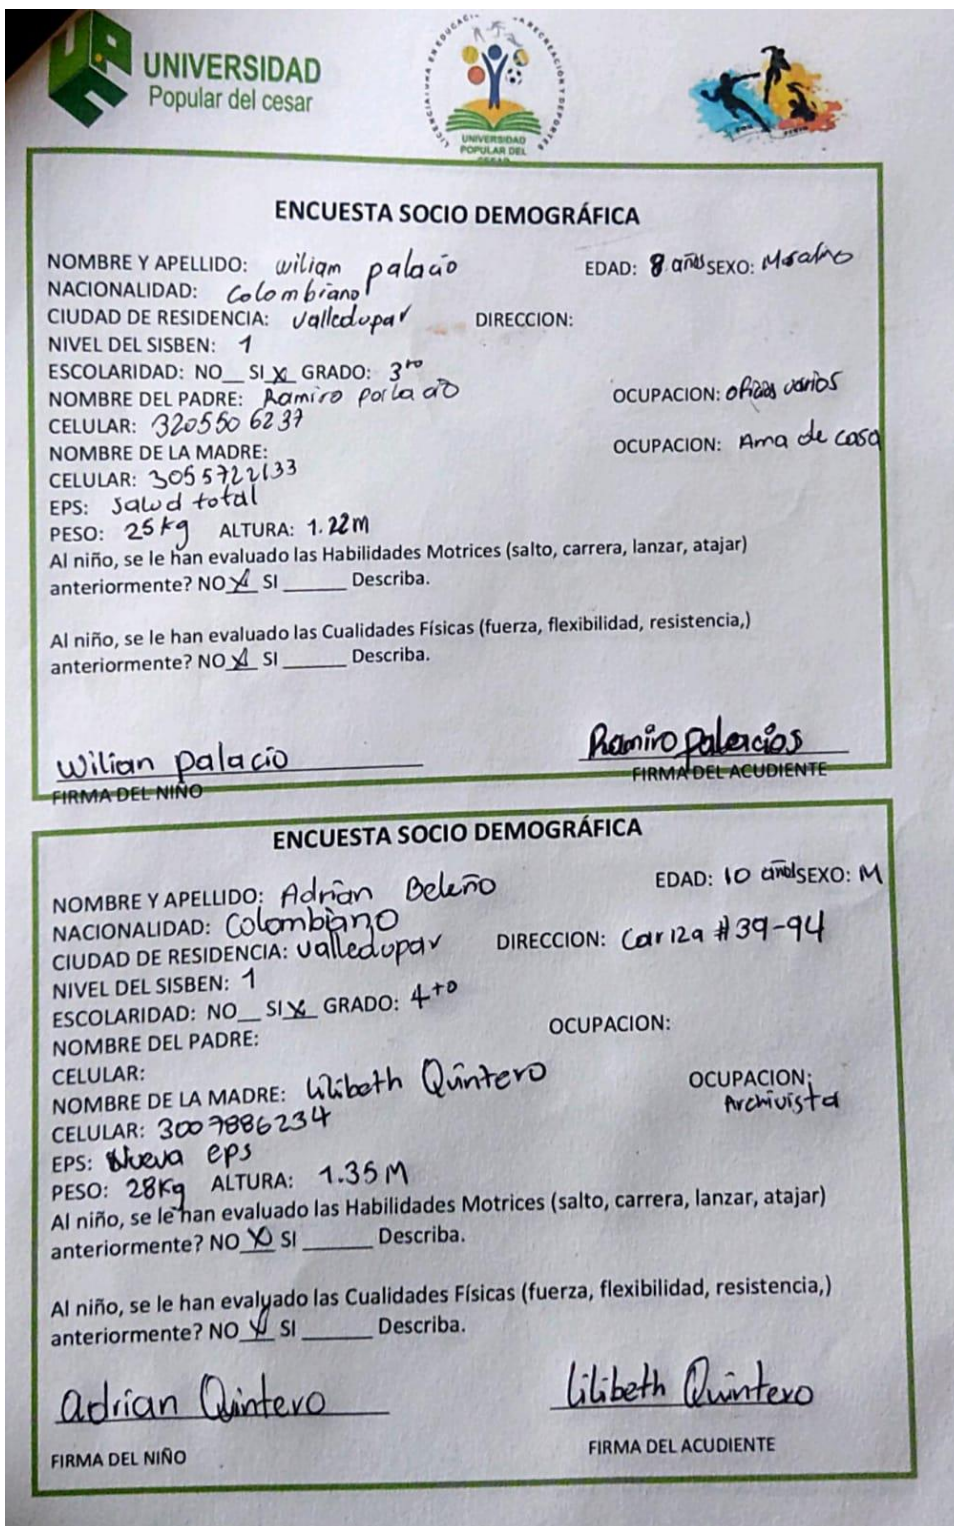 UNIVERSIDAD
Popular del cesar
UNIVERSIDAD
POPULAR DEL
CESAR
ENCUESTA SOCIO DEMOGRÁFICA
NOMBRE Y APELLIDO: wiliam palacio EDAD: 8 años SEXO:
NACIONALIDAD: Colombiano
CIUDAD DE RESIDENCIA: Valledupar DIRECCION:
NIVEL DEL SISBEN: 1
ESCOLARIDAD: NO__ SI X GRADO: 3ro
NOMBRE DEL PADRE: Ramiro OCUPACION: oficios varios
CELULAR: 3205506237
NOMBRE DE LA MADRE: OCUPACION: Ama de casa
CELULAR: 3055722133
EPS: Salud total
PESO: 25kg ALTURA: 1.22m
Al niño, se le han evaluado las Habilidades Motrices (salto, carrera, lanzar, atajar)
anteriormente? NO X SI ______ Describa.
Al niño, se le han evaluado las Cualidades Físicas (fuerza, flexibilidad, resistencia,)
anteriormente? NO X SI ______ Describa.
Wilian palacio Ramiro palacios
FIRMA DEL NIÑO FIRMA DEL ACUDIENTE
ENCUESTA SOCIO DEMOGRÁFICA
NOMBRE Y APELLIDO: Adrian Beleño EDAD: 10 años SEXO: M
NACIONALIDAD: Colombiano
CIUDAD DE RESIDENCIA: Valledupar DIRECCION: Car 12a #39-94
NIVEL DEL SISBEN: 1
ESCOLARIDAD: NO__ SI X GRADO: 4to
NOMBRE DEL PADRE: OCUPACION:
CELULAR:
NOMBRE DE LA MADRE: Lilibeth Quintero OCUPACION:
Archivista
CELULAR: 3007886234
EPS: Nueva eps
PESO: 28Kg ALTURA: 1.35 M
Al niño, se le han evaluado las Habilidades Motrices (salto, carrera, lanzar, atajar)
anteriormente? NO X SI ______ Describa.
Al niño, se le han evaluado las Cualidades Físicas (fuerza, flexibilidad, resistencia,)
anteriormente? NO X SI ______ Describa.
adrian Quintero lilibeth Quintero
FIRMA DEL NIÑO FIRMA DEL ACUDIENTE